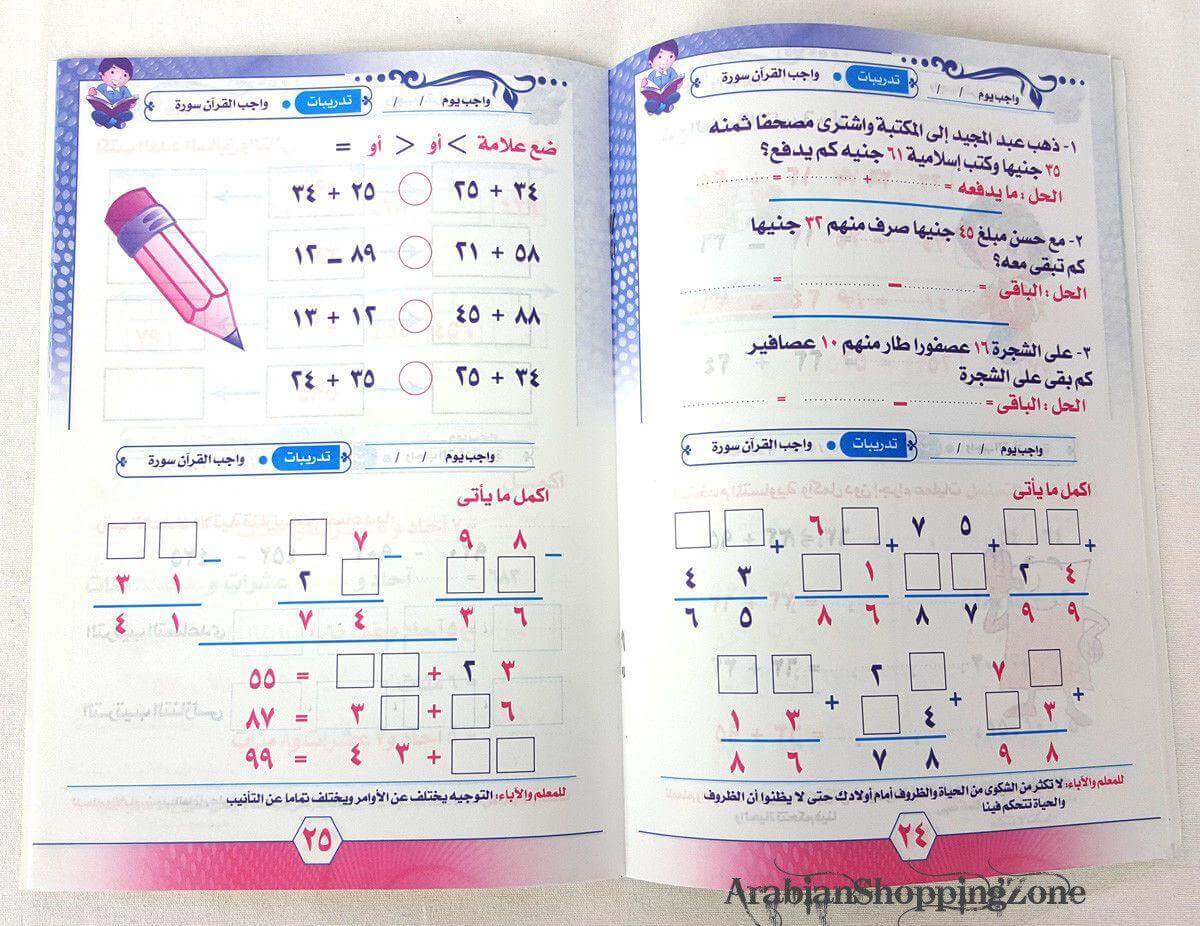 واجب يوم / / تدريبات • واجب القرآن سورة
١- ذهب عبد المجيد إلى المكتبة واشترى مصحفا ثمنه
٣٥ جنيها وكتب إسلامية ٦١ جنيه كم يدفع؟
الحل : ما يدفعه = .......... + .......... = ..........
٢- مع حسن مبلغ ٤٥ جنيها صرف منهم ٣٢ جنيها
كم تبقى معه؟
الحل : الباقى = .......... – .......... = ..........
٣- على الشجرة ١٦ عصفورا طار منهم ١٠ عصافير
كم بقى على الشجرة
الحل : الباقى = .......... – .......... = ..........
واجب يوم / / تدريبات • واجب القرآن سورة
اكمل ما يأتى
+ ٧٥ + ٦ + +
٢٤ ١ ٤٣
٩٩ ٨٧ ٨٦ ٦٥
+ ٧ + ٢ +
٣ ٤ ١٣
٩٨ ٧٨ ٨٦
للمعلم والآباء: لا تكثر من الشكوى من الحياة والظروف أمام أولادك حتى لا يظنوا أن الظروف
والحياة تتحكم فينا
٢٤
واجب يوم / / تدريبات • واجب القرآن سورة
ضع علامة > أو < أو =
٣٤ + ٢٥ ٢٥ + ٣٤
٥٨ + ٢١ ٨٩ – ١٢
٨٨ + ٤٥ ١٢ + ١٣
٣٤ + ٢٥ ٣٥ + ٢٤
واجب يوم / / تدريبات • واجب القرآن سورة
اكمل ما يأتى
– ٩٨ – ٧ –
٢ ٣١
٣٦ ٧٤ ٤١
٢٣ + = ٥٥
٦ + ٣ = ٨٧
+ ٤٣ = ٩٩
للمعلم والآباء: التوجيه يختلف عن الأوامر ويختلف تماما عن التأنيب
٢٥
ArabianShoppingZone